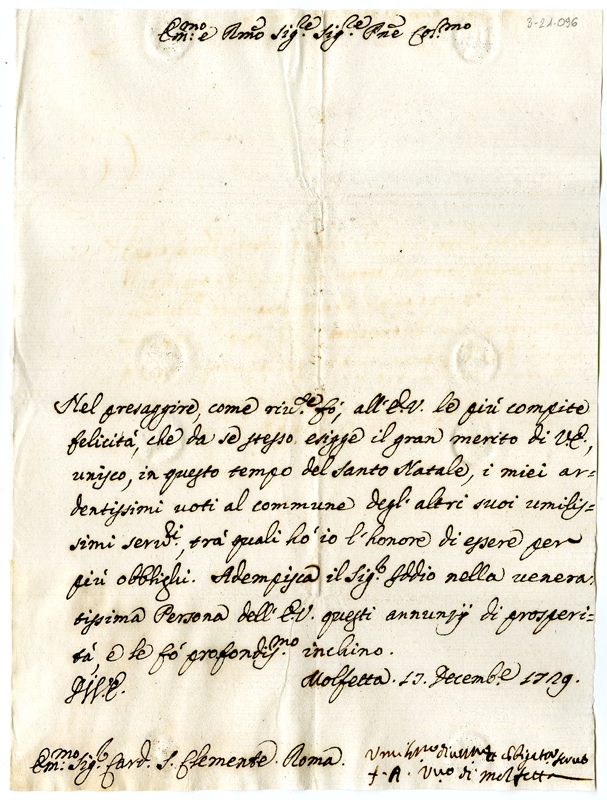 3-21-096
Em.mo e Rmo Sig.re Sig.re Pne Col.mo
Nel presaggire, come riv.te fó, all'E.V. le piú compite
felicitá, che da se stesso esigge il gran merito di V.E.,
unisco, in questo tempo del Santo Natale, i miei ar-
dentissimi voti al commune degl'altri suoi umilis-
simi serv.di, trá quali hó io l'honore di essere per
piú obblighi. Adempisca il Sig.r Iddio nella venera-
tissima Persona dell'E.V. questi annunzÿ di prosperi-
tá, e le fó profondis.mo inchino.
Molfetta. 17. Decemb.e 1729.
Em.mo Sig.r Card. S. Clemente. Roma.
Umiliss.mo
f. A. V.vo di Molfetta